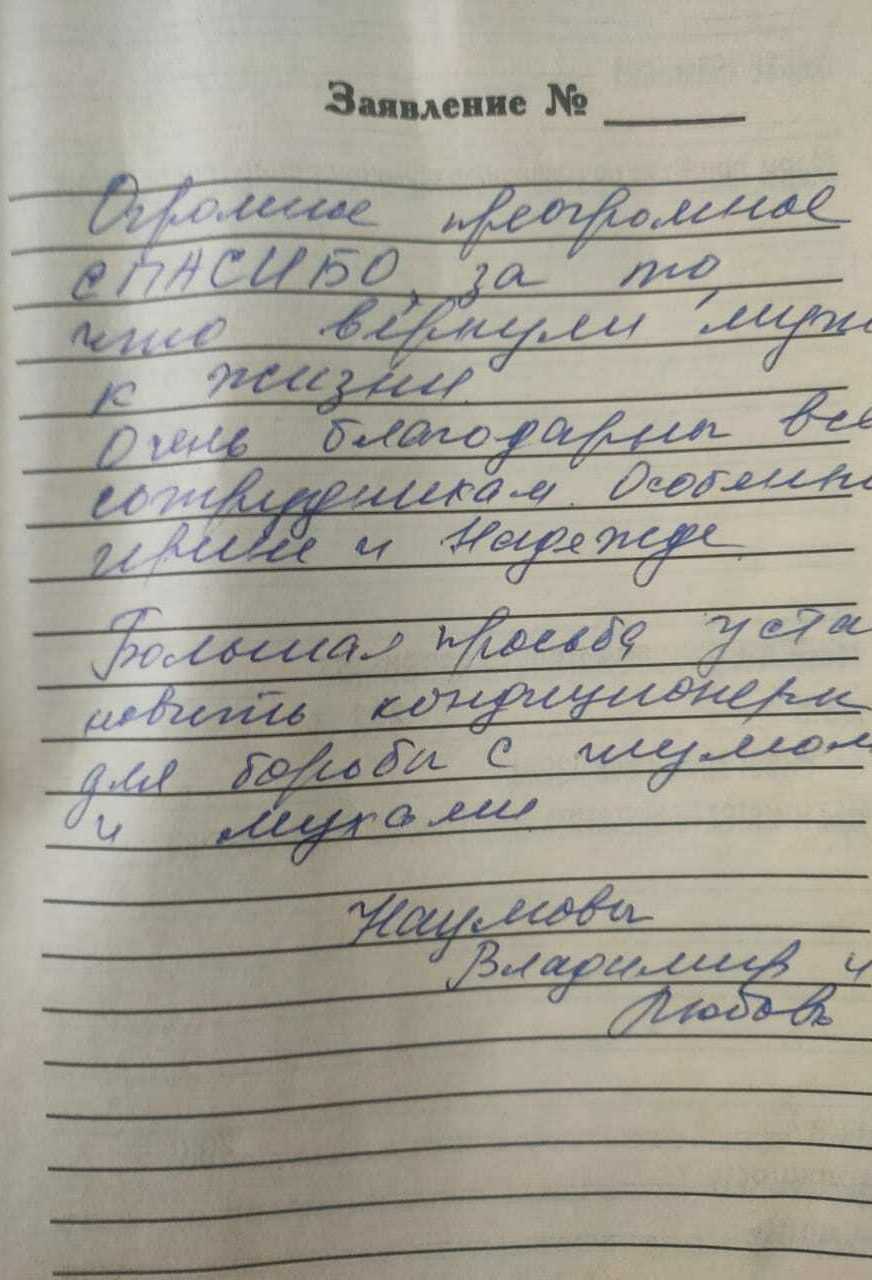 Заявление № ______
Огромное преогромное
СПАСИБО, за то,
что вернули муж
к жизни.
Очень благодарны все
сотрудникам. Особенн
Ирине и Надежде.
Большая просьба уста
новить кондиционеры
для борьбы с шумом
и мухами
Наумовы
Владимир и
Любовь